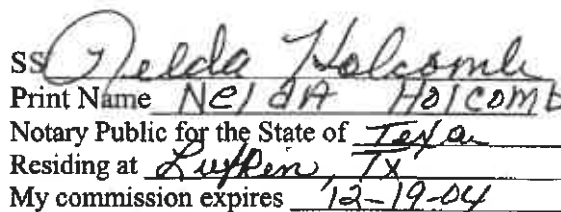 SS Nelda Holcomb
Print Name Nelda Holcomb
Notary Public for the State of Texas
Residing at Lufken, TX
My commission expires 12-19-04